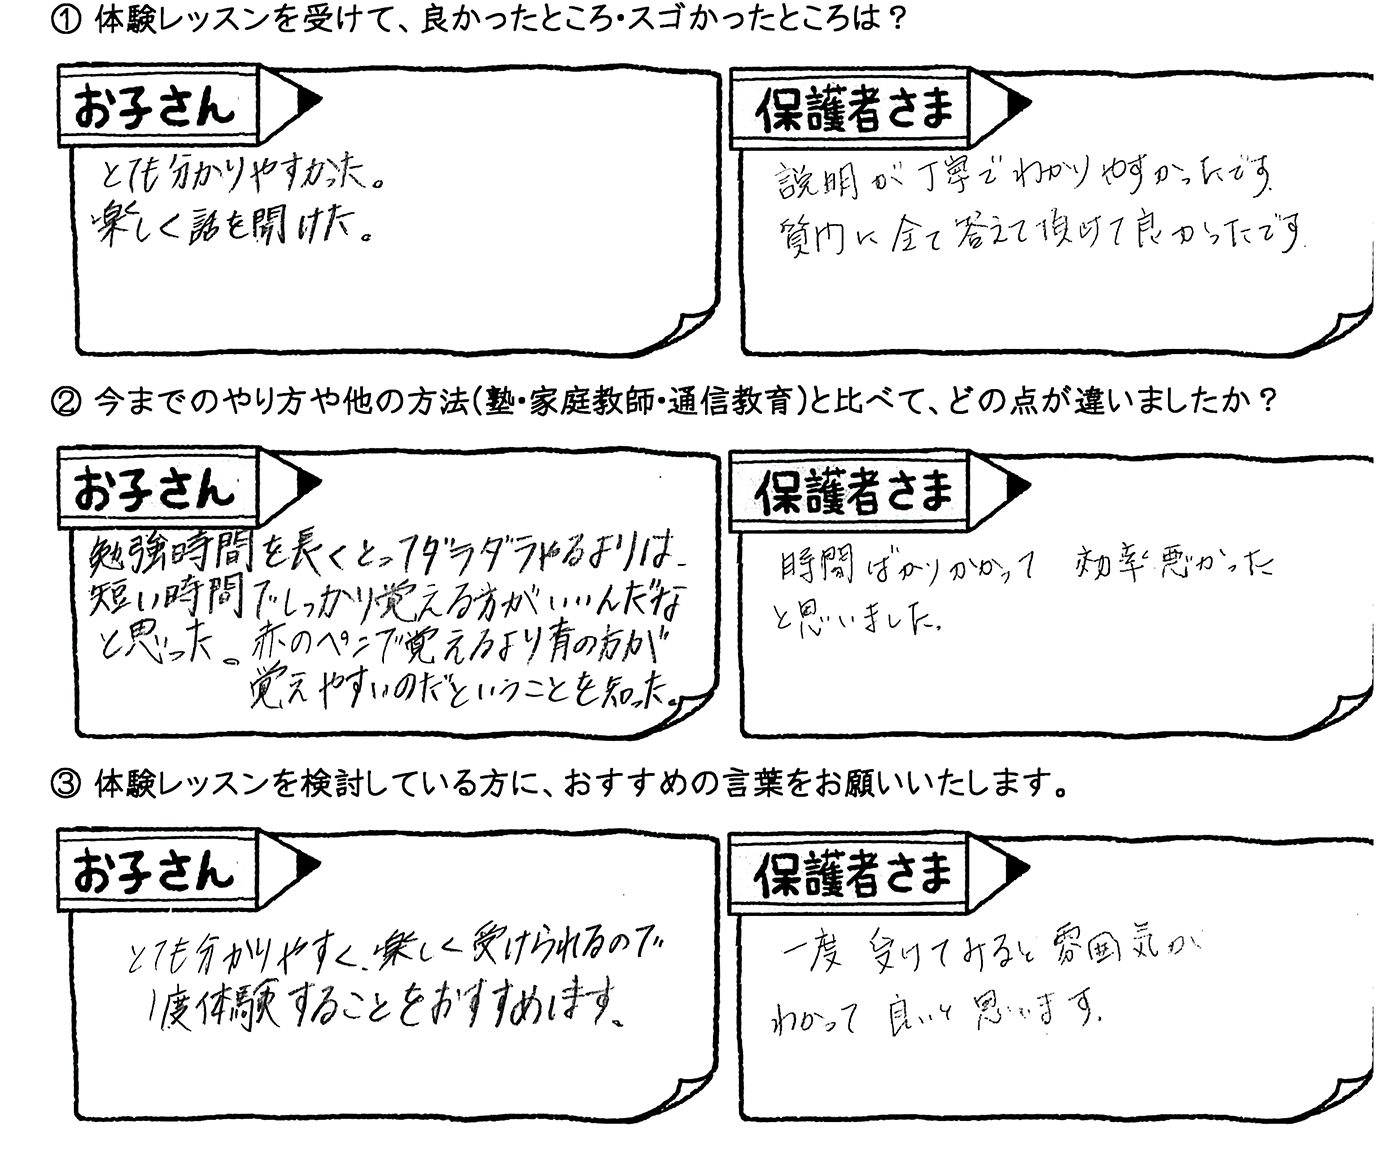 ① 体験レッスンを受けて、良かったところ・スゴかったところは？
お子さん
とても分かりやすかった。
楽しく話を聞けた。
保護者さま
説明が丁寧でわかりやすかったです.
質問に全て答えて頂けて良かったです.
② 今までのやり方や他の方法(塾・家庭教師・通信教育)と比べて、どの点が違いましたか？
お子さん
勉強時間を長くとってダラダラやるよりは、
短い時間でしっかり覚える方がいいんだな
と思った。赤のペンで覚えるより青の方が
覚えやすいのだということを知った。
保護者さま
時間ばかりかかって 効率悪かった
と思いました.
③ 体験レッスンを検討している方に、おすすめの言葉をお願いいたします。
お子さん
とても分かりやすく、楽しく受けられるので
1度体験することをおすすめします。
保護者さま
一度 受けてみると 雰囲気が
わかって 良いと 思います.